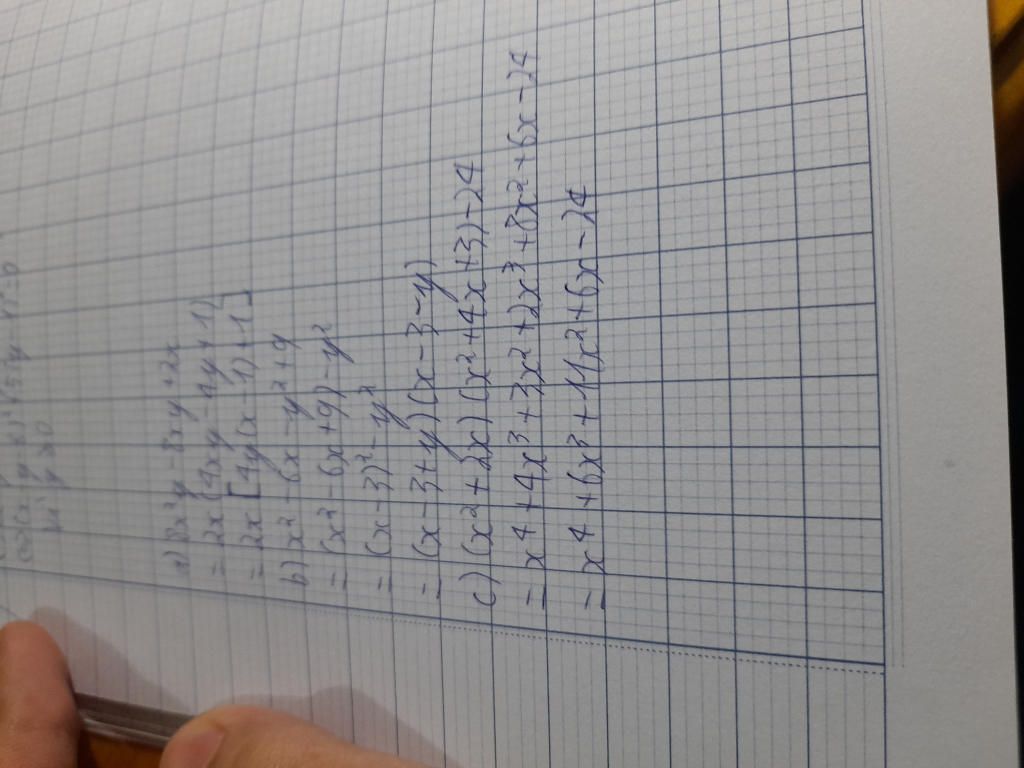 a) 8x²y - 8xy + 2x
= 2x(4xy - 4y + 1)
= 2x[4y(x - 1) + 1]
b) x² - 6x - y² + 9
= (x² - 6x + 9) - y²
= (x - 3)² - y²
= (x - 3 + y)(x - 3 - y)
c) (x² + 2x)(x² + 4x + 3) - 24
= x⁴ + 4x³ + 3x² + 2x³ + 8x² + 6x - 24
= x⁴ + 6x³ + 11x² + 6x - 24